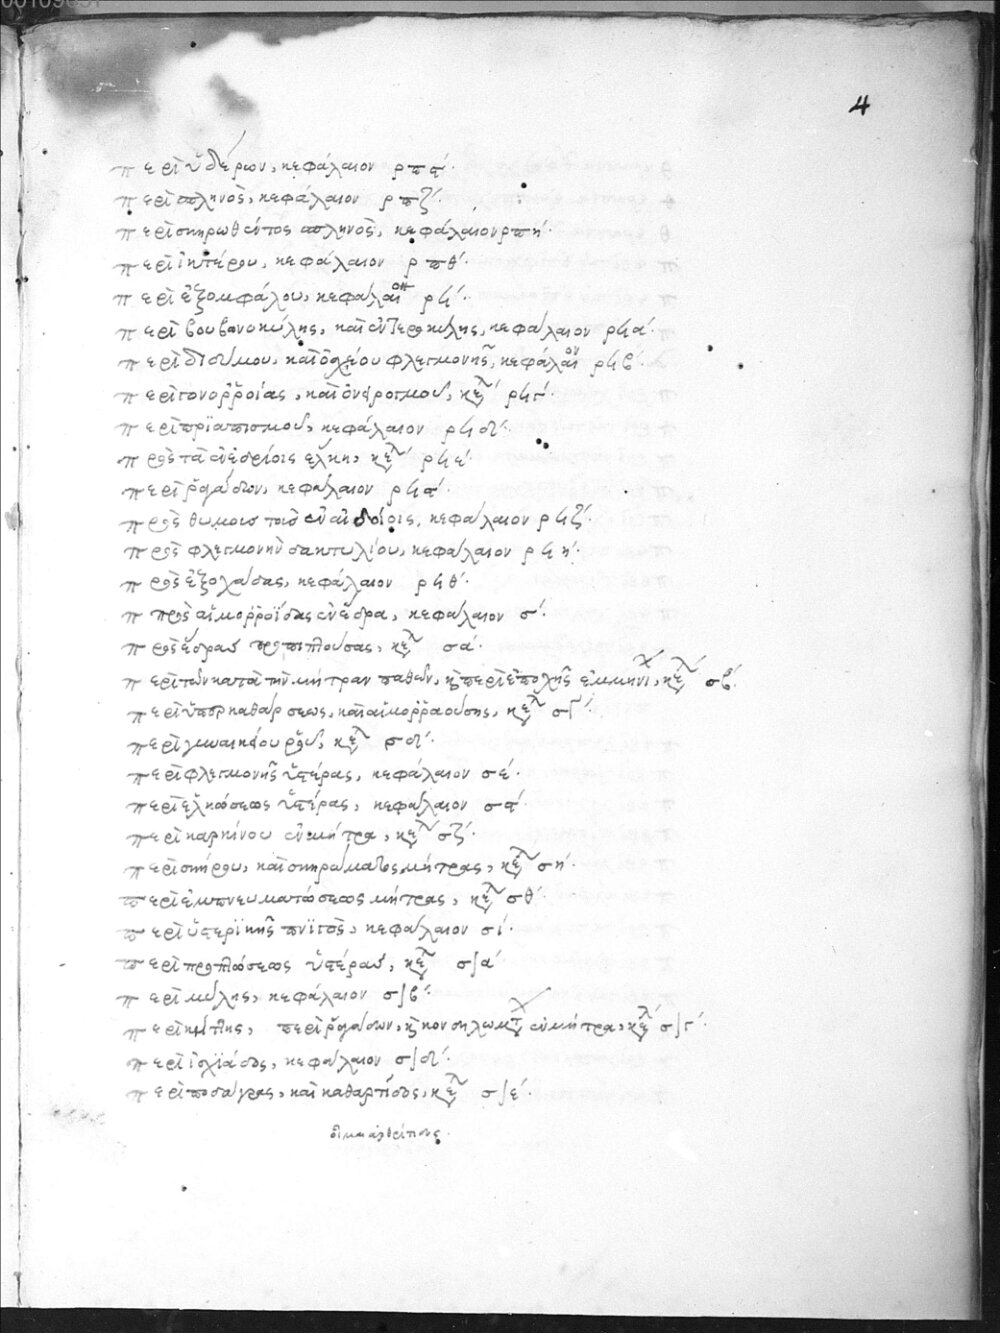 00109657
4
περὶ ὑδέρων, κεφάλαιον ρπϛ´.
περὶ σπληνὸς, κεφάλαιον ρπζ´.
περὶ σκιρωθέντος σπληνὸς, κεφάλαιον ρπη´.
περὶ ἰκτέρου, κεφάλαιον ρπθ´.
περὶ ἐξομφάλου, κεφάλαιον ρϟ´.
περὶ βουβωνοκήλης, καὶ ἐντεροκήλης, κεφάλαιον ρϟα´.
περὶ διδύμου, καὶ ὀσχέου φλεγμονῆς, κεφάλαιον ρϟβ´.
περὶ γονορροίας, καὶ ὀνειρογμοῦ, κεφ ρϟγ´
περὶ πριαπισμοῦ, κεφάλαιον ρϟδ´.
πρὸς τὰ ἐν αἰδοίοις ἕλκη, κεφ ρϟε´.
περὶ ῥαγάδων, κεφάλαιον ρϟϛ´.
πρὸς θύμους τοὺς ἐν αἰδοίοις, κεφάλαιον ρϟζ´.
πρὸς φλεγμονὴν δακτυλίου, κεφάλαιον ρϟη´.
πρὸς ἐξοχάδας, κεφάλαιον ρϟθ´.
π πρὸς αἱμορροΐδας ἐν ἕδρα, κεφάλαιον σ´.
πρὸς ἕδραν προπιπτούσας, κεφ σα´.
περὶ τῶν κατὰ τὴν μήτραν παθῶν, καὶ περὶ ἐποχῆς ἐμμήνι, κεφ σβ´.
περὶ ὑπερκαθάρσεως, καὶ αἱμορραούσης, κεφ σγ´.
περὶ γυναικείου ῥοῦ, κεφ σδ´.
περὶ φλεγμονῆς ὑστέρας, κεφάλαιον σε´.
περὶ ἑλκώσεως ὑστέρας, κεφάλαιον σϛ´.
περὶ καρκίνου ἐν μήτρα, κεφ σζ´.
περὶ σκίρου, καὶ σκιρώματος μήτρας, κεφ ση´.
περὶ ἐμπνευματώσεως μήτρας, κεφ σθ´.
περὶ ὑστερικῆς πνιγὸς, κεφάλαιον σι´.
περὶ προπτώσεως ὑστέραν, κεφ σια´
περὶ μύλης, κεφάλαιον σιβ´.
περὶ ῥαγάδων, καὶ κονδηλωμτ ἐν μήτρα, κεφ σιγ´.
περὶ ἰσχιάδος, κεφάλαιον σιδ´.
περὶ ποδάγρας, καὶ καθαρτίσος, κεφ σιε´.